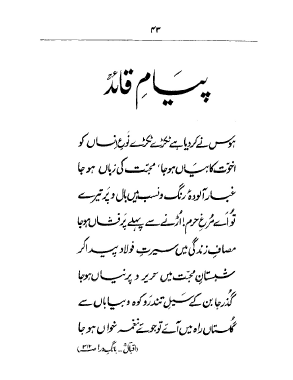 ۴۳
پیامِ قائدؒ
ہوس نے کر دیا ہے ٹکڑے ٹکڑے نوعِ انساں کو
اخوّت کا بیاں ہو جا، محبّت کی زباں ہو جا
غبار آلودۂ رنگ و نسب ہیں بال و پر تیرے
تو اے مرغِ حرم! اُڑنے سے پہلے پر فشاں ہو جا
مصافِ زندگی میں سیرتِ فولاد پیدا کر
شبستانِ محبّت میں حریر و پرنیاں ہو جا
گذر جا بن کے سیلِ تندرو کوہ و بیاباں سے
گلستاں راہ میں آئے تو جوئے نغمہ خواں ہو جا
(اقبالؒ - بانگِ درا ص ۳۱۲)